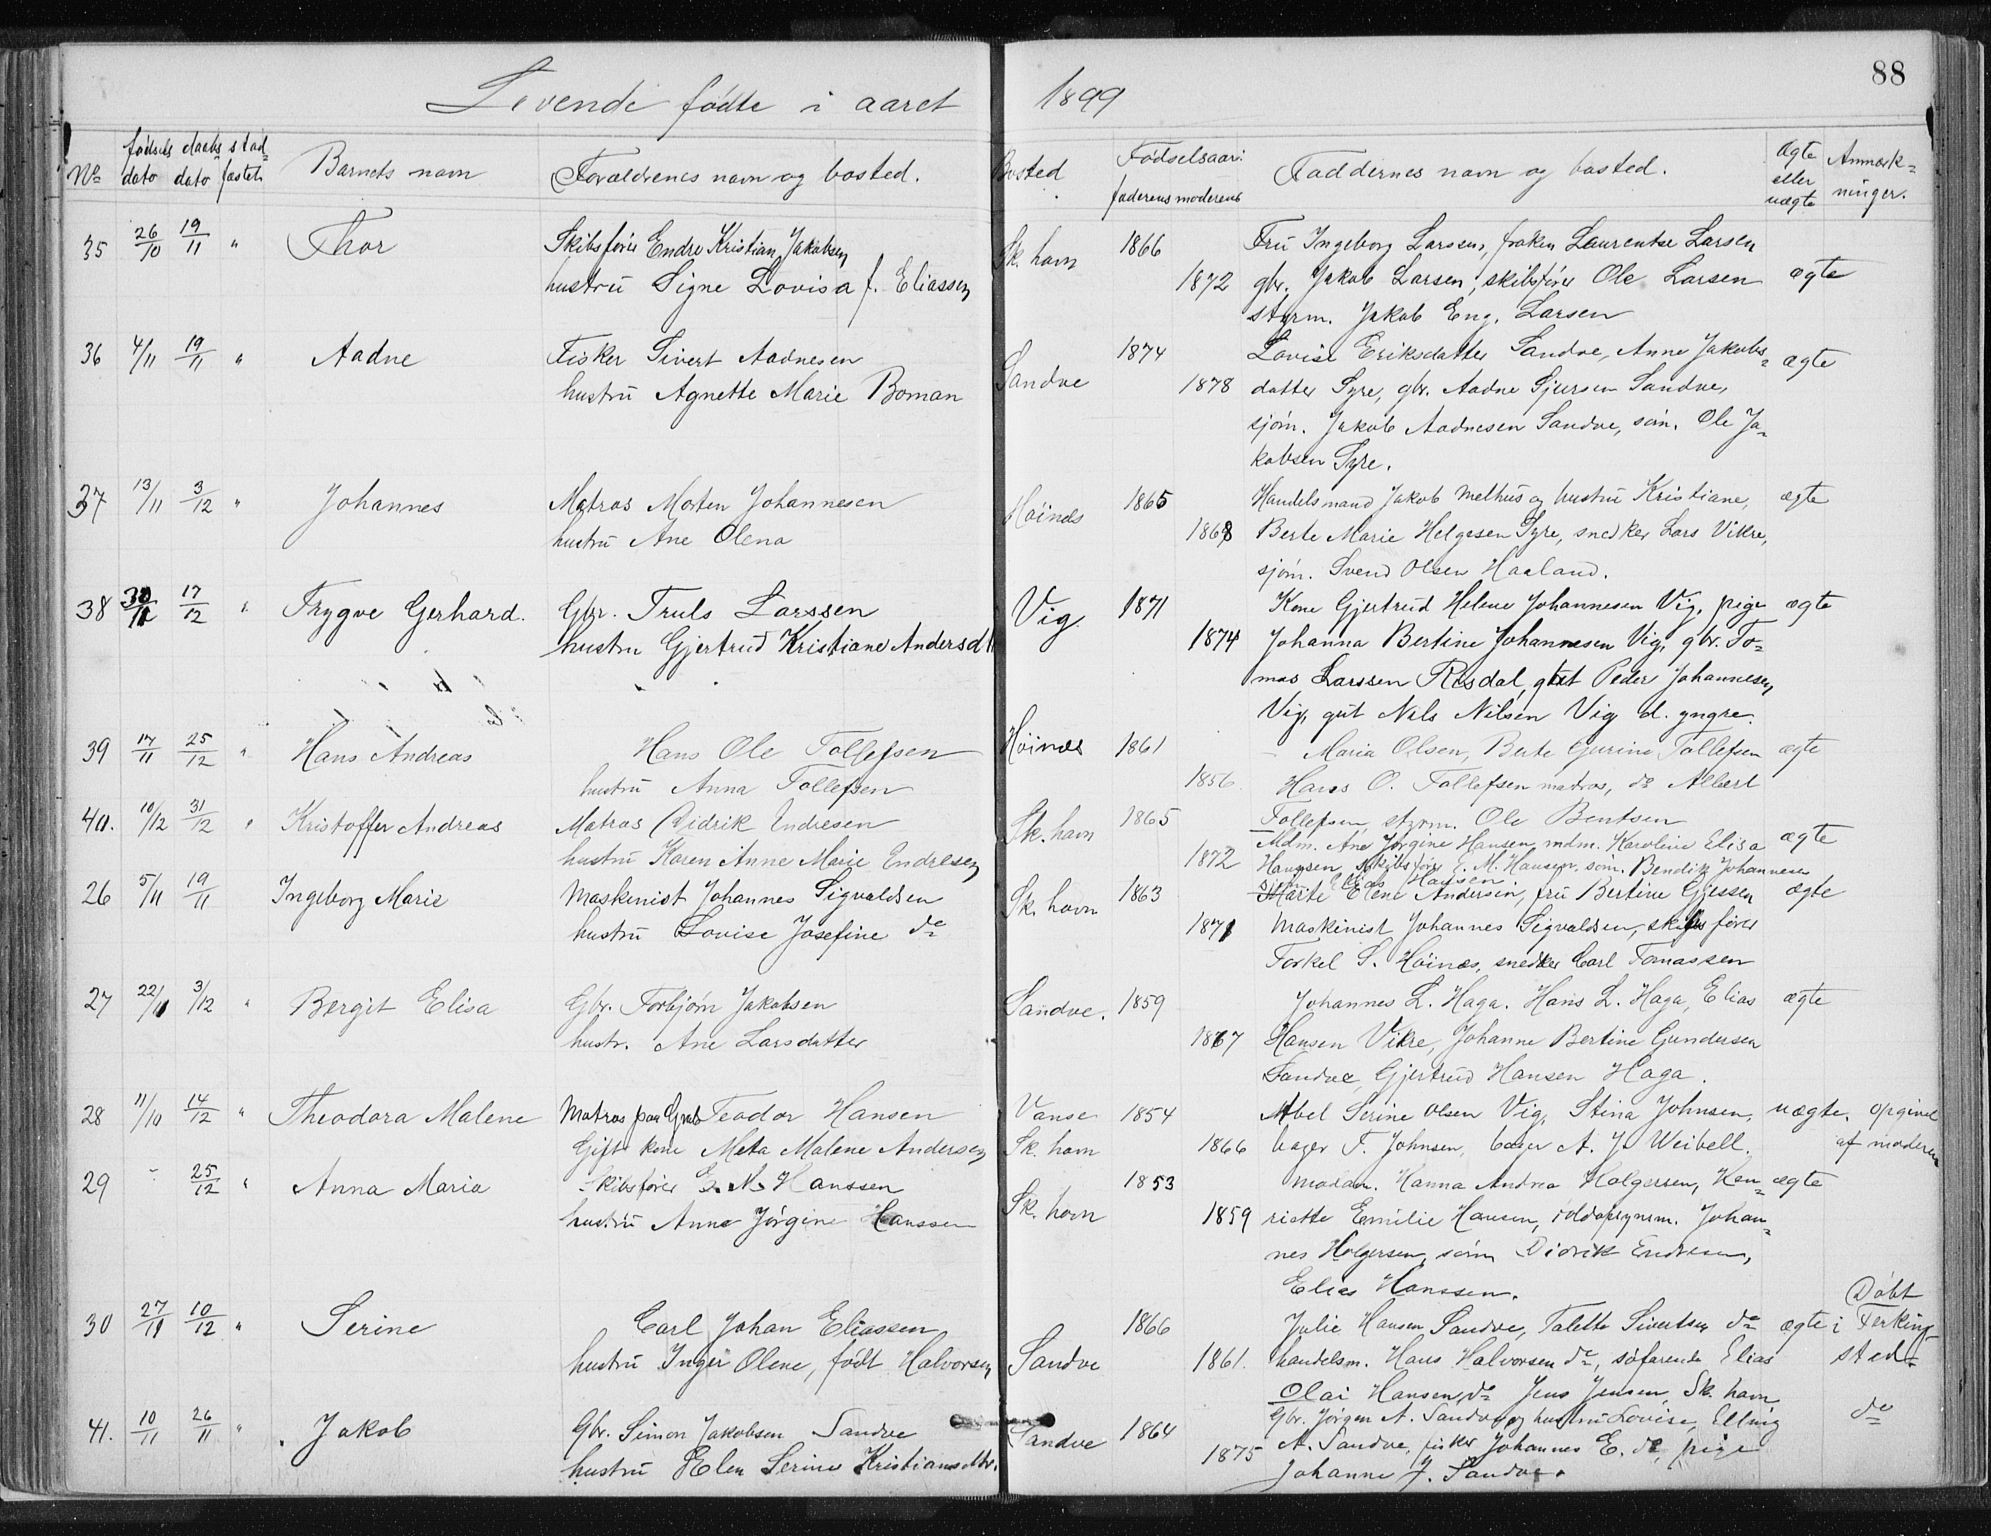 88
Levende fødte i aaret 1899
No fødsels dato daabs dato stadfæstet Barnets navn Forældrenes navn og bosted. Bosted Fødselsaar: faderens moderens Faddernes navn og bosted. Ægte eller uægte Anmærk=ninger.
35 26/10 19/11 " Thor Skibsfører Endre Kristian Jakobsen Sk. havn 1866 Fru Ingeborg Larsen, frøken Laurentse Larsen
hustru Signe Lovisa f. Eliassen 1872 gbr. Jakob Larsen, skibsfører Ole Larsen ægte
styrm. Jakob Eng. Larsen
36 4/11 19/11 " Aadne Fisker Sivert Aadnesen Sandve 1874 Lovise Eriksdatter Sandve, Anne Jakobs= ægte
hustru Agnette Marie Boman 1878 datter Syre, gbr. Aadne Sjursen Sandve,
sjøm. Jakob Aadnesen Sandve, søm. Ole Ja=
kobsen Syre.
37 13/11 3/12 " Johannes Matros Morten Johannesen Høines 1865 Handelsmand Jakob Melhus og hustru Kristiane, ægte
hustru Ane Olena 1868 Berte Marie Helgesen Syre, snedker Lars Vikre,
sjøm. Svend Olsen Haaland.
38 30/11 17/12 " Trygve Gerhard. Gbr. Truls Larssen Vig. 1871 Kone Gjertrud Helene Johannesen Vig, pige ægte
hustru Gjertrud Kristiane Andersdtr 1874 Johanna Bertine Johannesen Vig, gbr. To=
mas Larssen Risdal, gut Peder Johannesen
Vig, gut Nils Nilsen Vig d. yngre.
39 17/11 25/12 " Hans Andreas Hans Ole Tollefsen Høines 1861 Maria Olsen, Berte Gurine Tollefsen ægte
hustru Anna Tollefsen 1856 Hans O. Tollefsen matros, do Albert
Tollefsen, styrm. Ole Bentsen
40. 10/12 31/12 " Kristoffer Andreas Matros Didrik Endresen Sk. havn 1865 Mdm. Ane Jørgine Hansen, mdm. Karoline Elisa ægte
hustru Karen Anne Marie Endresen 1872 Hansen, skibsfører E. N. Hansen, søm. Bendik Johannesen
søm. Elias Hansen
26 5/11 19/11 Ingeborg Marie Maskinist Johannes Sigvaldsen Sk. havn 1863 Marte Elene Andersen, fru Bertine Gjessen ægte
hustru Lovise Josefine do 1871 Maskinist Johannes Sigvaldsen, skibsfører
Torkel S. Høines, snedker Carl Tomassen
27 22/10 3/12 " Bergit Elisa Gbr. Torbjørn Jakobsen Sandve. 1859 Johannes L. Haga. Hans L. Haga, Elias ægte
hustr. Ane Larsdatter 1867 Hansen Vikre, Johanne Bertine Gundersen
Sandve, Gjertrud Hansen Haga.
28 11/10 14/12 " Theodora Malene Matros paa Grab Teodor Hansen Vanse 1854 Abel Serine Olsen Vig, Stina Johnsen, uægte. opgivel
Gift kone Meta Malene Andersen Sk. havn 1866 bager F. Johnsen, bager A. J. Weibell. af moderen
29 - 25/12 " Anna Maria Skibsfører E. N. Hanssen Sk. havn 1853 Madam. Hanna Andrea Holgersen, Hen= ægte
hustru Anne Jørgine Hanssen 1859 riette Emilie Hansen, Johan=
nes Holgersen, søm Didrik Endresen,
Elias Hanssen.
30 27/10 10/12 " Serine Carl Johan Eliassen Sandve 1866 Julie Hansen Sandve, Talette Sivertsen do ægte Døbt i Ferking=
hustru Inger Olene, født Halvorsen 1861. handelsm. Hans Halvorsen do, søfarende Elias sted.
Olai Hansen, do Jens Jensen, Sk. havn
41. 10/11 26/11 " Jakob Gbr. Simon Jakobsen Sandve Sandve 1864 Gbr. Jørgen A. Sandve og hustru Lovise, Elling do
hustru Elen Serine Kristiansdtr. 1875 A. Sandve, fisker Johannes E. do, pige
Johanne J. Sandve.